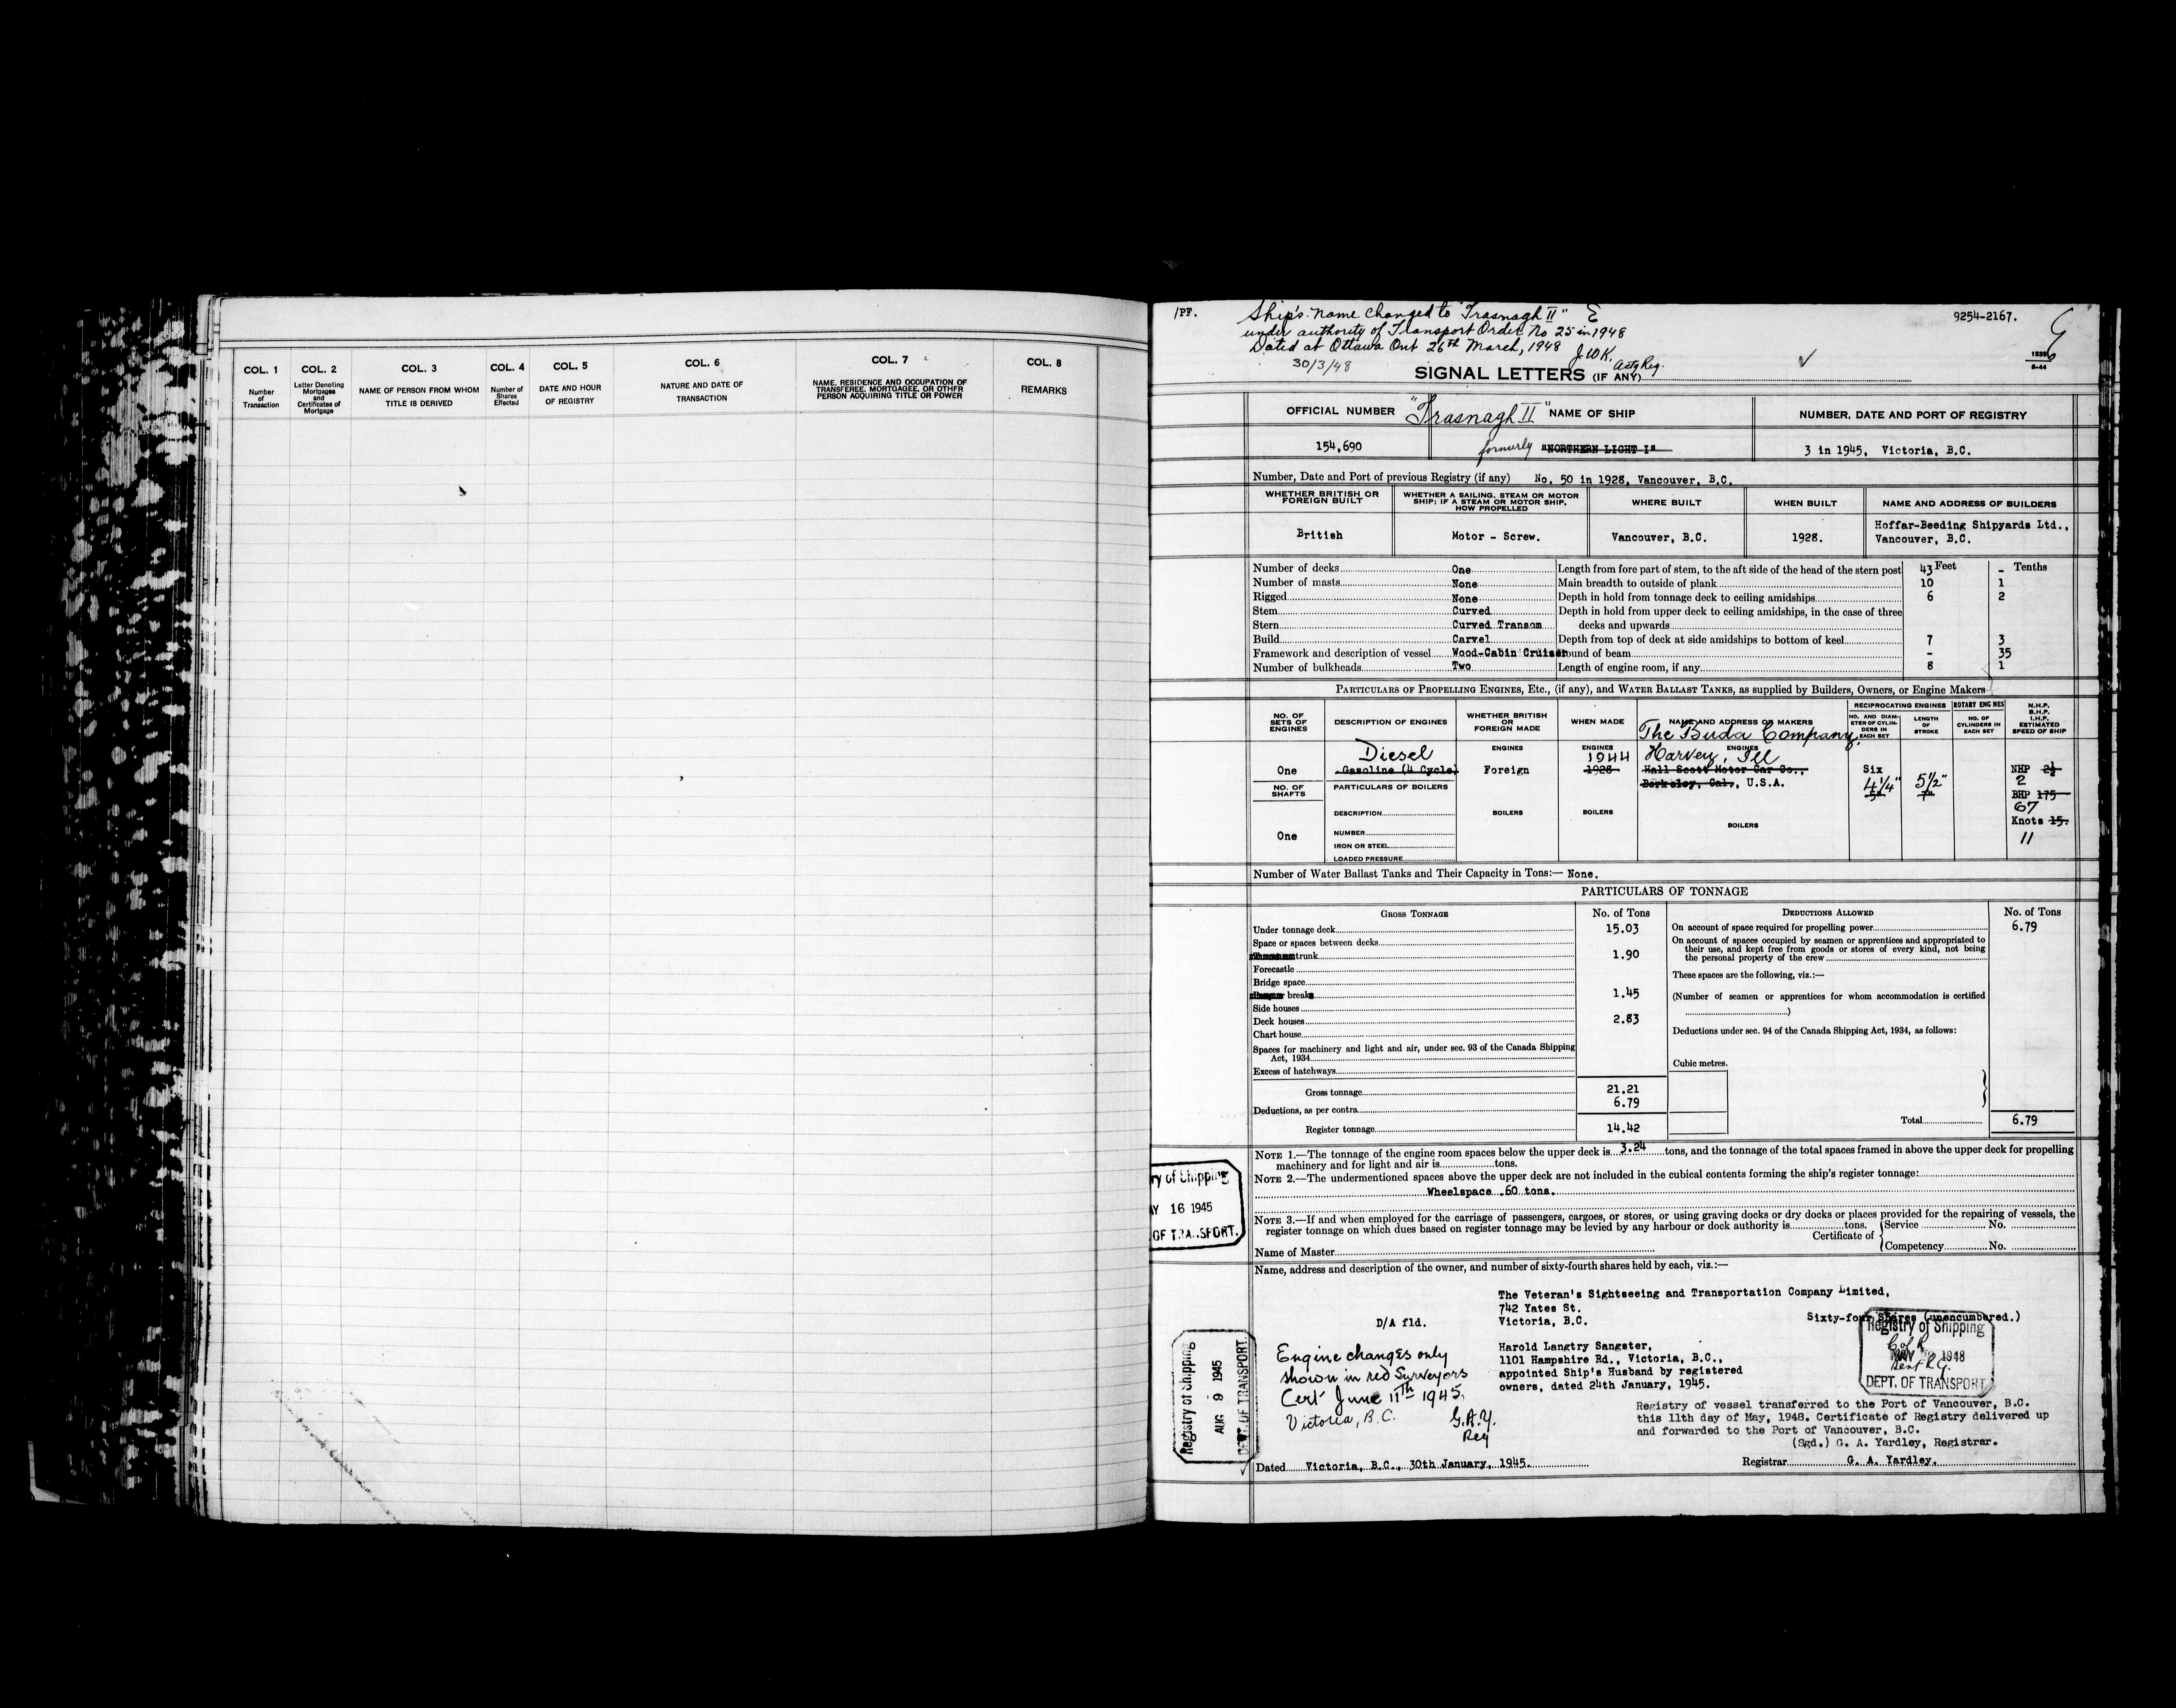 COL. 1
Number
of
Transaction
COL. 2
Letter Denoting
Mortgages
and
Certificates of
Mortgage
COL. 3
NAME OF PERSON FROM WHOM
TITLE IS DERIVED
COL. 4
Number of
Shares
Effected
COL. 5
DATE AND HOUR
OF REGISTRY
COL. 6
NATURE AND DATE OF
TRANSACTION
COL. 7
NAME, RESIDENCE AND OCCUPATION OF
TRANSFEREE, MORTGAGEE, OR OTHER
PERSON ACQUIRING TITLE OR POWER
COL. 8
REMARKS
/PF.
Ship's name changed to "Trasnagh II"
under authority of Transport Order No 25 in 1948
Dated at Ottawa Ont 26th March, 1948 J.W.K.
30/3/48 Actg Reg.
9254-2167.
SIGNAL LETTERS (IF ANY)
OFFICIAL NUMBER
"Trasnagh II" NAME OF SHIP
NUMBER, DATE AND PORT OF REGISTRY
154,690
formerly "NORTHERN LIGHT I"
3 in 1945, Victoria, B.C.
Number, Date and Port of previous Registry (if any) No. 50 in 1928, Vancouver, B.C.
WHETHER BRITISH OR
FOREIGN BUILT
WHETHER A SAILING, STEAM OR MOTOR
SHIP; IF A STEAM OR MOTOR SHIP,
HOW PROPELLED
WHERE BUILT
WHEN BUILT
NAME AND ADDRESS OF BUILDERS
British
Motor - Screw.
Vancouver, B.C.
1928.
Hoffar-Beeding Shipyards Ltd.,
Vancouver, B.C.
Number of decks One
Number of masts None
Rigged None
Stem Curved
Stern Curved Transom
Build Carvel
Framework and description of vessel Wood-Cabin Cruiser
Number of bulkheads Two
Feet Tenths
Length from fore part of stem, to the aft side of the head of the stern post 43 -
Main breadth to outside of plank 10 1
Depth in hold from tonnage deck to ceiling amidships 6 2
Depth in hold from upper deck to ceiling amidships, in the case of three
decks and upwards
Depth from top of deck at side amidships to bottom of keel 7 3
ound of beam - 35
Length of engine room, if any 8 1
PARTICULARS OF PROPELLING ENGINES, ETC., (if any), AND WATER BALLAST TANKS, as supplied by Builders, Owners, or Engine Makers
NO. OF
SETS OF
ENGINES
DESCRIPTION OF ENGINES
WHETHER BRITISH
OR
FOREIGN MADE
WHEN MADE
NAME AND ADDRESS OF MAKERS
RECIPROCATING ENGINES
NO. AND DIAM-
ETER OF CYLIN-
DERS IN
EACH SET
LENGTH
OF
STROKE
ROTARY ENGINES
NO. OF
CYLINDERS IN
EACH SET
N.H.P.
B.H.P.
I.H.P.
ESTIMATED
SPEED OF SHIP
One
Diesel
Gasoline (4 Cycle)
ENGINES
Foreign
ENGINES
1944
1928
The Buda Company,
ENGINES
Harvey, Ill
Hall Scott Motor Car Co.,
Berkeley, Cal., U.S.A.
Six
4 1/4"
5"
5 1/2"
7"
NHP 2½
2
BHP 175
67
Knots 15.
11
NO. OF
SHAFTS
One
PARTICULARS OF BOILERS
DESCRIPTION
NUMBER
IRON OR STEEL
LOADED PRESSURE
BOILERS
BOILERS
BOILERS
Number of Water Ballast Tanks and Their Capacity in Tons:— None.
PARTICULARS OF TONNAGE
GROSS TONNAGE No. of Tons
Under tonnage deck 15.03
Space or spaces between decks
trunk 1.90
Forecastle
Bridge space
break 1.45
Side houses
Deck houses 2.83
Chart house
Spaces for machinery and light and air, under sec. 93 of the Canada Shipping
Act, 1934
Excess of hatchways
Gross tonnage 21.21
Deductions, as per contra 6.79
Register tonnage 14.42
DEDUCTIONS ALLOWED No. of Tons
On account of space required for propelling power 6.79
On account of spaces occupied by seamen or apprentices and appropriated to
their use, and kept free from goods or stores of every kind, not being
the personal property of the crew
These spaces are the following, viz.:—
(Number of seamen or apprentices for whom accommodation is certified
)
Deductions under sec. 94 of the Canada Shipping Act, 1934, as follows:
Cubic metres.
Total 6.79
NOTE 1.—The tonnage of the engine room spaces below the upper deck is 3.24 tons, and the tonnage of the total spaces framed in above the upper deck for propelling
machinery and for light and air is tons.
NOTE 2.—The undermentioned spaces above the upper deck are not included in the cubical contents forming the ship's register tonnage:
Wheelspace .60 tons.
NOTE 3.—If and when employed for the carriage of passengers, cargoes, or stores, or using graving docks or dry docks or places provided for the repairing of vessels, the
register tonnage on which dues based on register tonnage may be levied by any harbour or dock authority is tons.
Certificate of {Service No.
Competency No.
Name of Master
ry of Shipping
AY 16 1945
OF TRANSPORT.
Name, address and description of the owner, and number of sixty-fourth shares held by each, viz.:—
The Veteran's Sightseeing and Transportation Company Limited,
742 Yates St.
Victoria, B.C.
Sixty-four Shares (unencumbered.)
D/A fld.
Harold Langtry Sangster,
1101 Hampshire Rd., Victoria, B.C.,
appointed Ship's Husband by registered
owners, dated 24th January, 1945.
Engine changes only
shown in red Surveyors
Cert June 11th 1945.
Victoria, B.C. G.A.Y.
Reg
Registry of Shipping
AUG 9 1945
DEPT. OF TRANSPORT.
Registry of Shipping
C of R
MAY 1948
Sent R.G.
DEPT. OF TRANSPORT
Registry of vessel transferred to the Port of Vancouver, B.C.
this 11th day of May, 1948. Certificate of Registry delivered up
and forwarded to the Port of Vancouver, B.C.
(Sgd.) G. A. Yardley, Registrar.
Dated Victoria, B.C., 30th January, 1945.
Registrar G. A. Yardley.